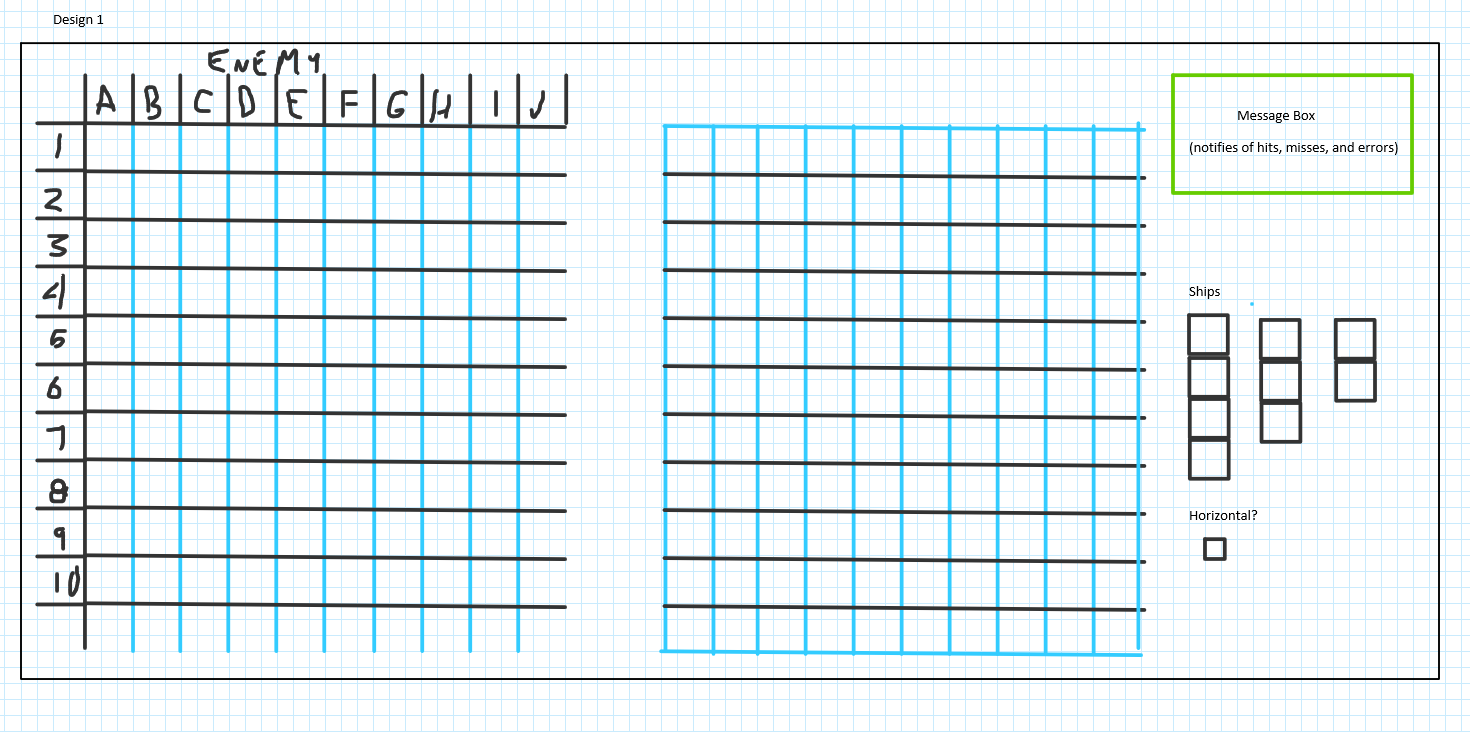 Design 1
ENEMY
A B C D E F G H I J
1
2
3
4
5
6
7
8
9
10
Message Box
(notifies of hits, misses, and errors)
Ships
Horizontal?